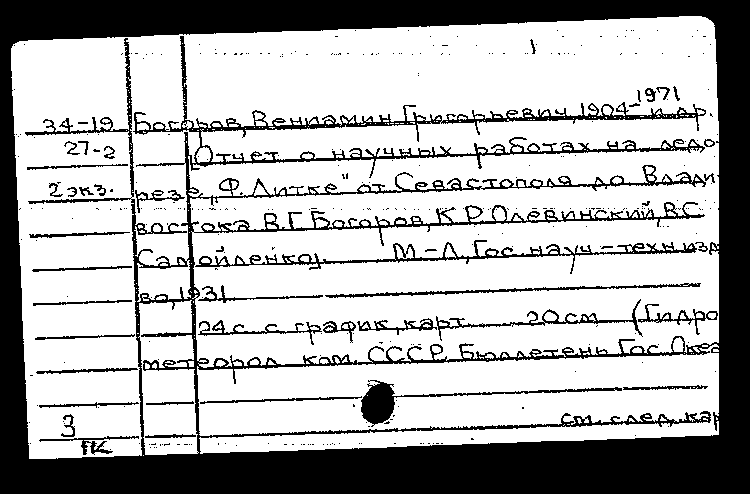 1971
34-19 Богоров, Вениамин Григорьевич, 1904- и др.
27-2 [Отчет о научных работах на ледо-
2 экз. резе „Ф. Литке" от Севастополя до Влади-
востока В.Г. Богоров, К.Р. Олевинский, В.С.
Самойленко]. М.-Л., Гос. науч.-техн. изд-
во, 1931
24 с. с график., карт. 20 см (Гидро-
метеорол. ком. СССР. Бюллетень Гос. Океа
см. след. кар
3
ПК